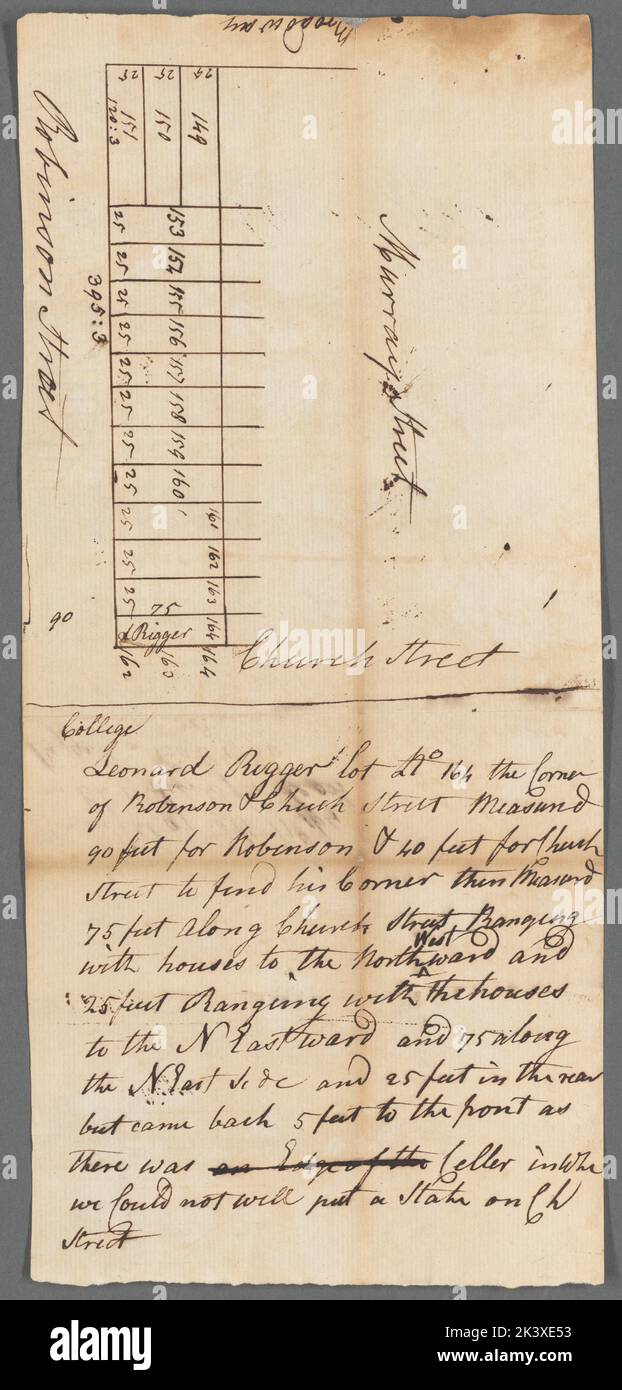 Broadway
25 25 25
149
150
151
120:3
Robinson Street
395:3
Murray Street
153 154 155 156 157 158 159 160
25 25 25 25 25 25 25 25 25 25 25
161 162 163 164
75
L Rigger
90
162 160 164
Church Street
College
Leonard Rigger lot No 164 the Corner
of Robinson & Chuch Street Measurd
90 feet for Robinson & 40 feet for Chuch
Street to find his Corner then Measurd
75 feet along Church Street Ranging
with houses to the North West ward and
25 feet Rangeing with the houses
to the N Eastward and 75 along
the N. East Side and 25 feet in the rear
but came back 5 feet to the pont as
there was an Edge of the Celler in Whc
we Could not well put a Stake on Ch
Street
alamy
Image ID: 2K3XE53
www.alamy.com